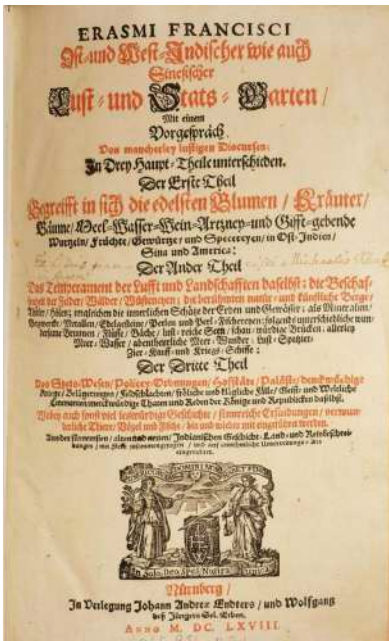 ERASMI FRANCISCI
Ost- und West-Indischer wie auch
Sinesischer
Lust- und Stats-Garten /
Mit einem
Vorgespräch
Von mancherley lustigen Discursen:
In Drey Haupt-Theile unterschieden.
Der Erste Theil
Begreifft in sich die edelsten Blumen / Kräuter /
Bäume / Meel-Wasser-Wein-Artzney- und Gifft-gebende
Wurtzeln / Früchte / Gewürtze / und Specereyen / in Ost-Indien /
Sina und America:
Der Ander Theil
Das Temperament der Lufft und Landschafften daselbst; die Beschaf-
fenheit der Felder / Wälder / Wüsteneyen; die berühmten natür- und künstliche Berge /
Thäler / Hölen; imgleichen die innerlichen Schätze der Erden und Gewässer; als Mineralien /
Bergwercke / Metallen / Edelgesteine / Perlen und Perl-Fischereyen; folgends unterschiedliche wun-
dersame Brunnen / Flüsse / Bäche / lust-reiche Seen / schau-würdige Brücken; allerley
Meer-Wasser / abentheurliche Meer-Wunder; Lust-Spatzier-
Zier-Kauff- und Kriegs-Schiffe:
Der Dritte Theil
Das Stats-Wesen / Policey-Ordnungen / Hofstäte / Paläste / denckwürdige
Kriege / Belägerungen / Feldschlachten / fröliche und klägliche Fälle / Geist- und Weltliche
Ceremonien merckwürdige Thaten und Reden der Könige und Republicken daselbst.
Wobey auch sonst viel leswürdige Geschichte / sinnreiche Erfindungen / verwun-
derliche Thiere / Vögel und Fische / hin und wieder mit eingeführt werden.
Aus den fürnemsten / alten und neuen / Indianischen Geschicht-Land- und Reisbeschrei-
bungen / mit Fleiß zusammengezogen / und auf annehmliche Unterredungs-Art
eingerichtet.
In Solo Deo Spes Nostra
Nürnberg /
In Verlegung Johann Andreæ Endters / und Wolfgang
deß Jüngern Sel. Erben.
ANNO M. DC. LXVIII.